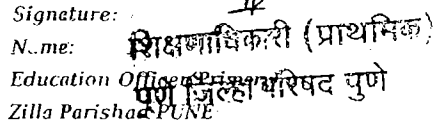 Signature:
Name: शिक्षणाधिकारी (प्राथमिक)
Education Officer Primary
पुणे जिल्हा परिषद पुणे
Zilla Parishad PUNE